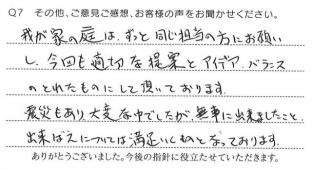 Q7 その他、ご意見ご感想、お客様の声をお聞かせください。
我が家の庭は、ずっと同じ担当の方にお願い
し、今回も適切な提案とアイデア、バランス
のとれたものにして頂いております。
震災もあり大変な中でしたが、無事に出来ましたこと、
出来ばえについては満足いくものとなっております。
ありがとうございました。今後の指針に役立たせていただきます。